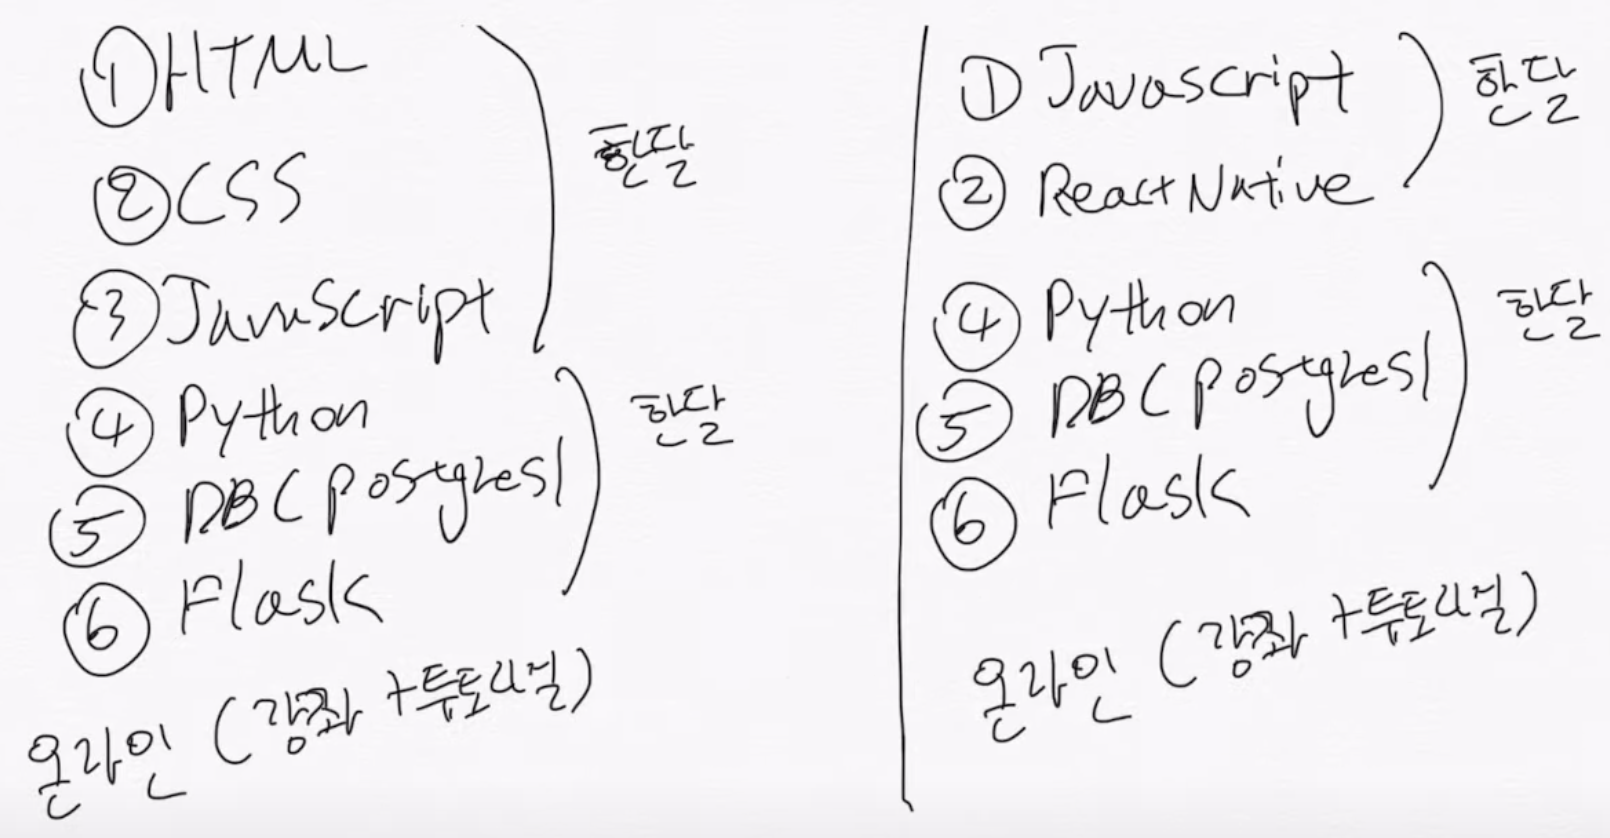 ① HTML
② CSS
③ JavaScript
한달
④ Python
⑤ DB (postgresl
⑥ Flask
한달
온라인 (강좌 +투토리얼)
① Javascript
② React Native
한달
④ Python
⑤ DB (postgresl
⑥ Flask
한달
온라인 (강좌 +투토리얼)